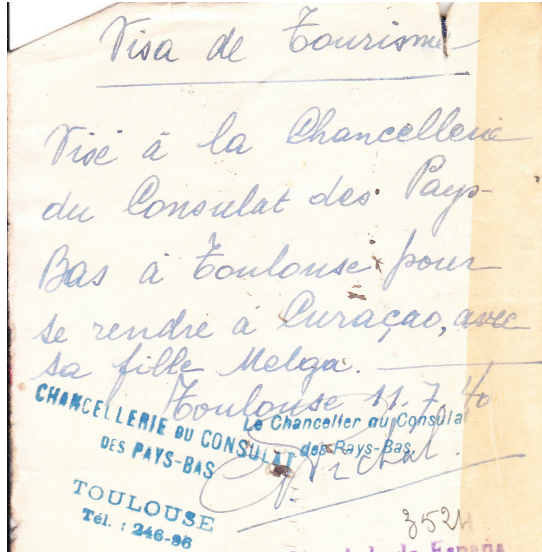 Visa de Tourisme
Visé à la Chancellerie
du Consulat des Pays-
Bas à Toulouse pour
se rendre à Curaçao, avec
sa fille Melga.
Toulouse 11.7.40
CHANCELLERIE DU CONSULAT
DES PAYS-BAS
TOULOUSE
Tél. : 246-96
Le Chancelier du Consula
des Pays-Bas
3521
España